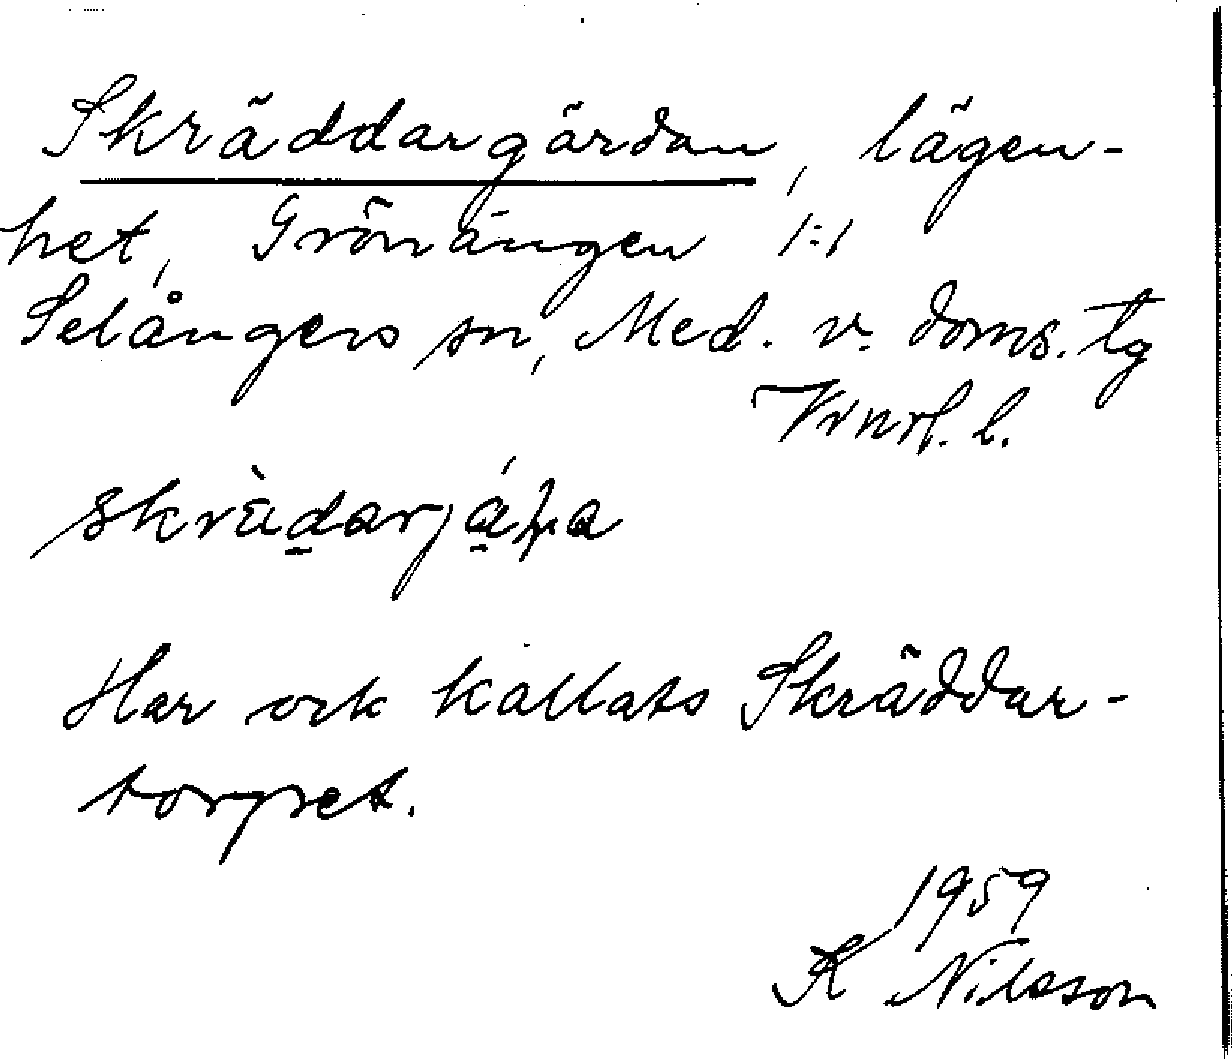 Skräddargärdan, lägen-
het, Grönängen 1:1
Selångers sn, Med. v. doms. tg
Vrnrl. l.
Har ock kallats Skräddar-
torpet.
1959
K Nilsson